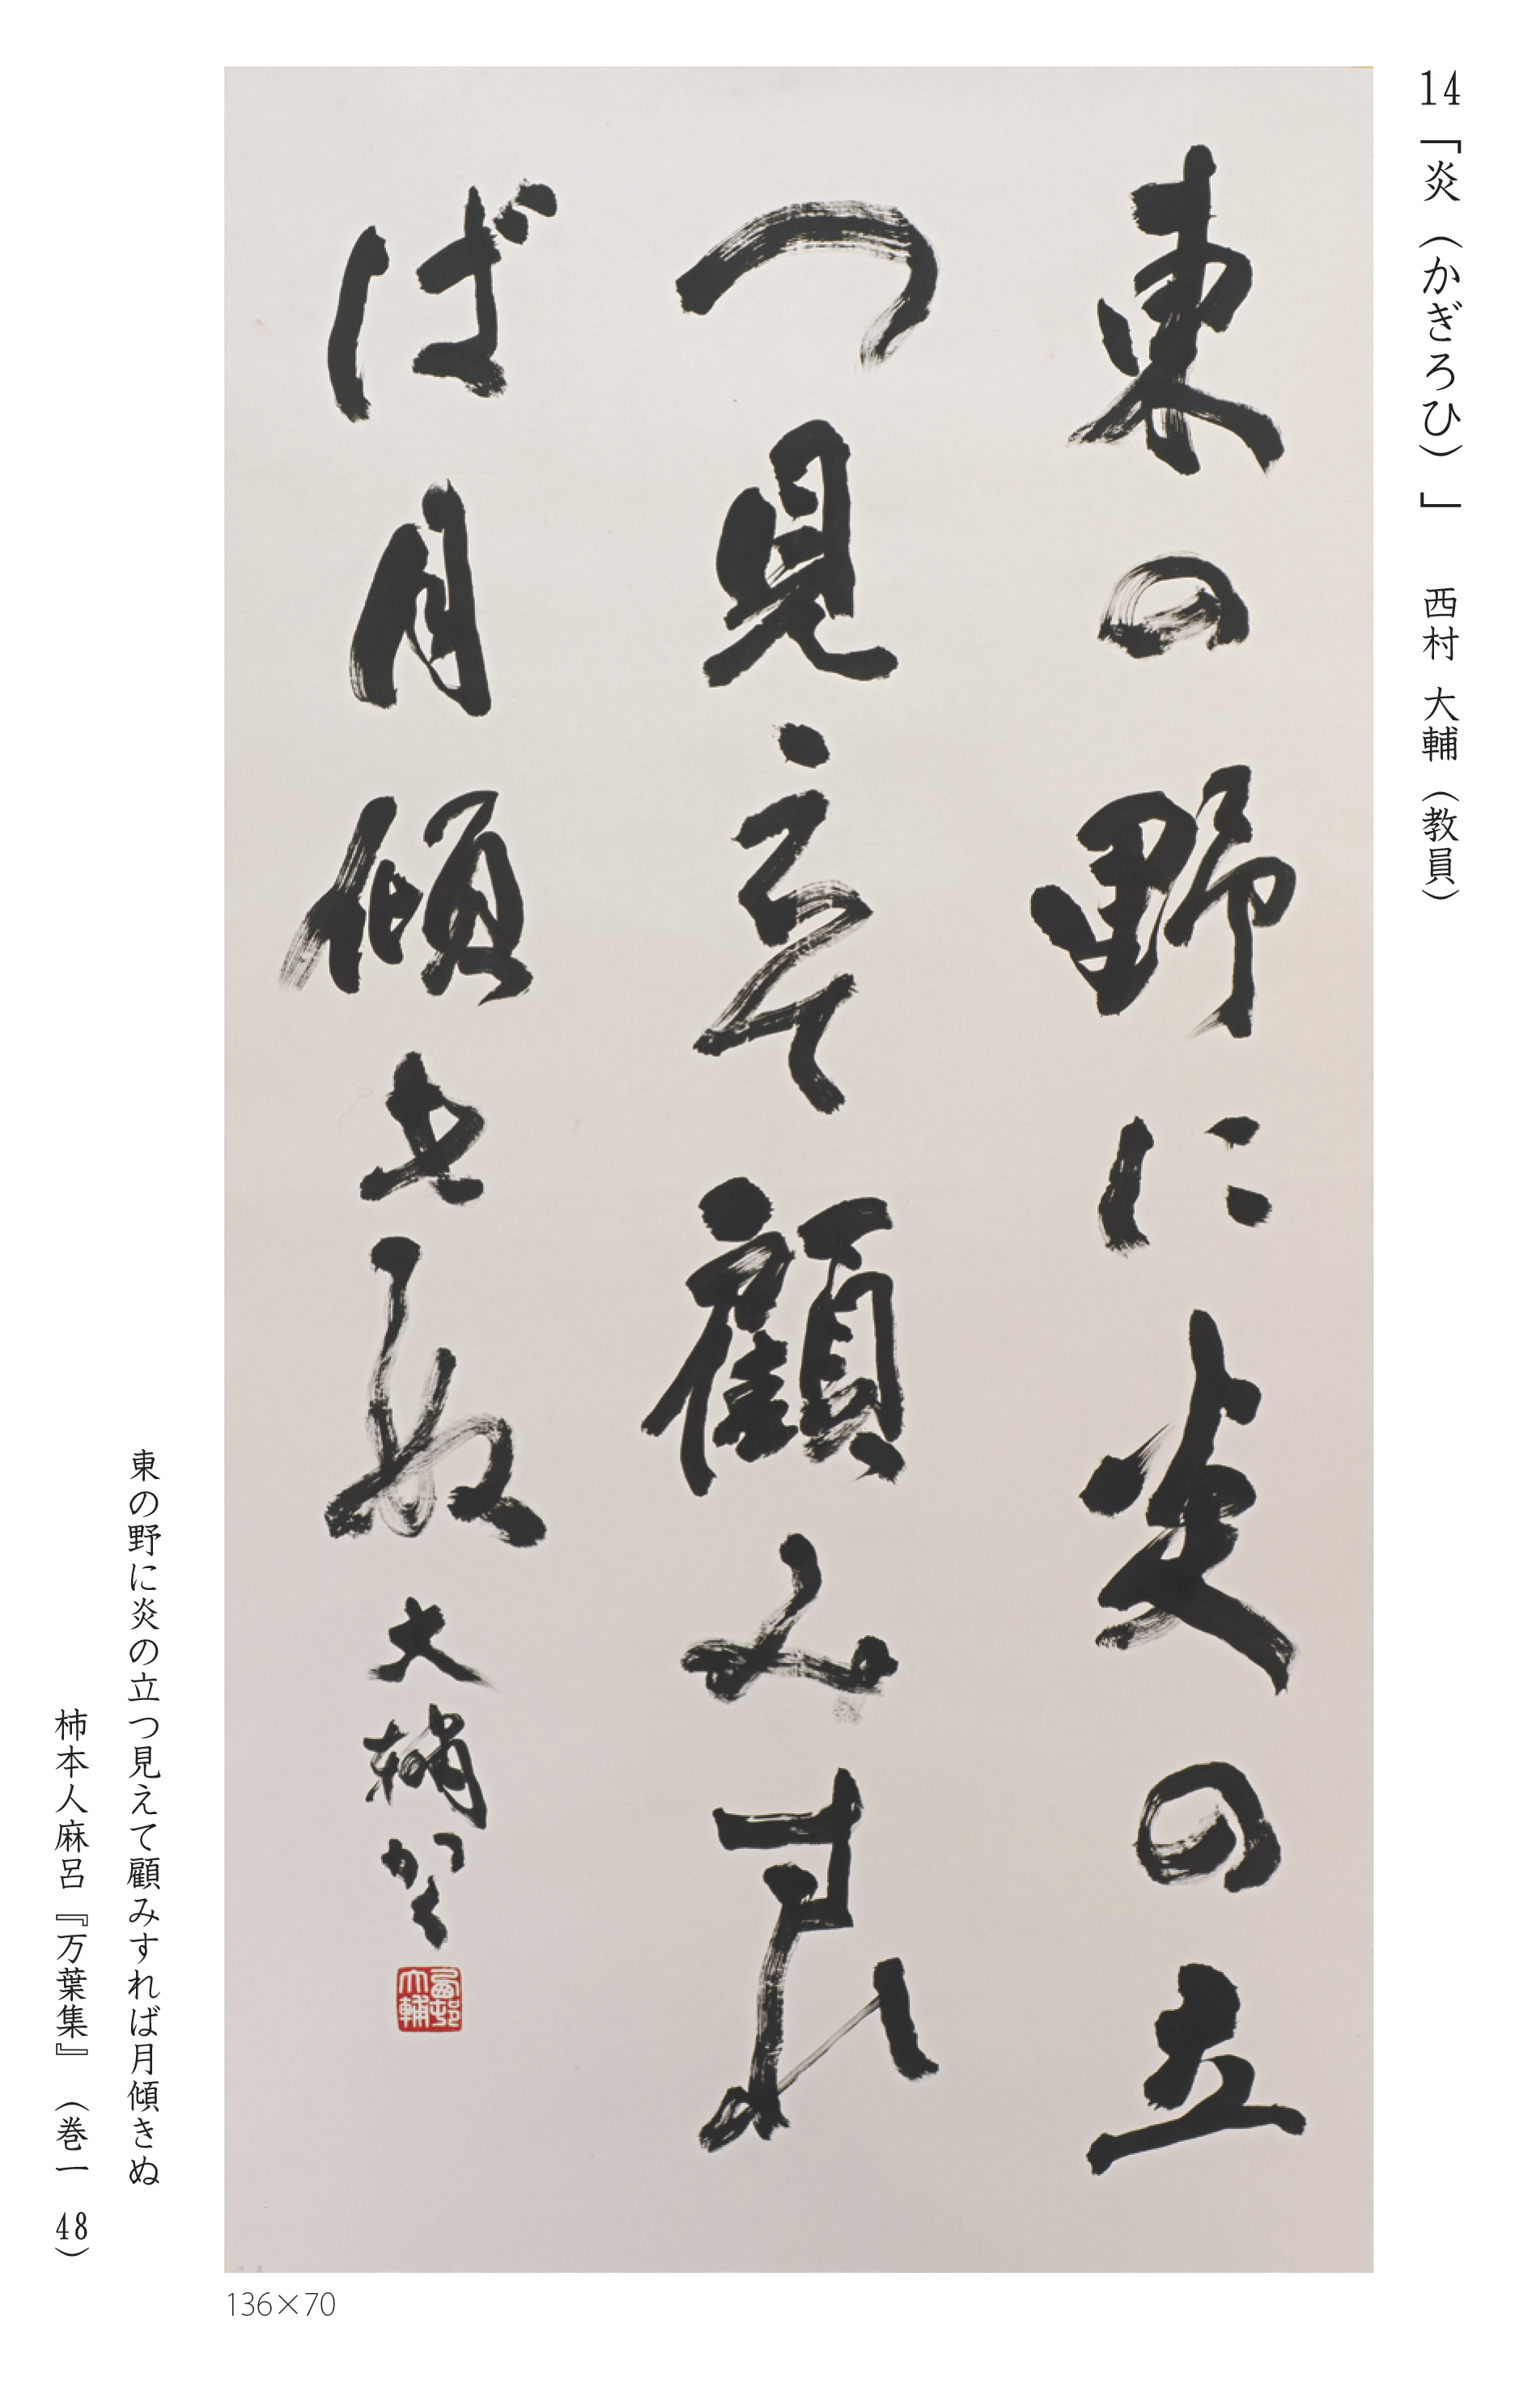 14「炎（かぎろひ）」 西村 大輔（教員）
東の野に炎の立
つ見えて顧みすれ
ば月傾きぬ 大輔かく
西邨大輔
東の野に炎の立つ見えて顧みすれば月傾きぬ
柿本人麻呂『万葉集』（巻一 48）
136×70